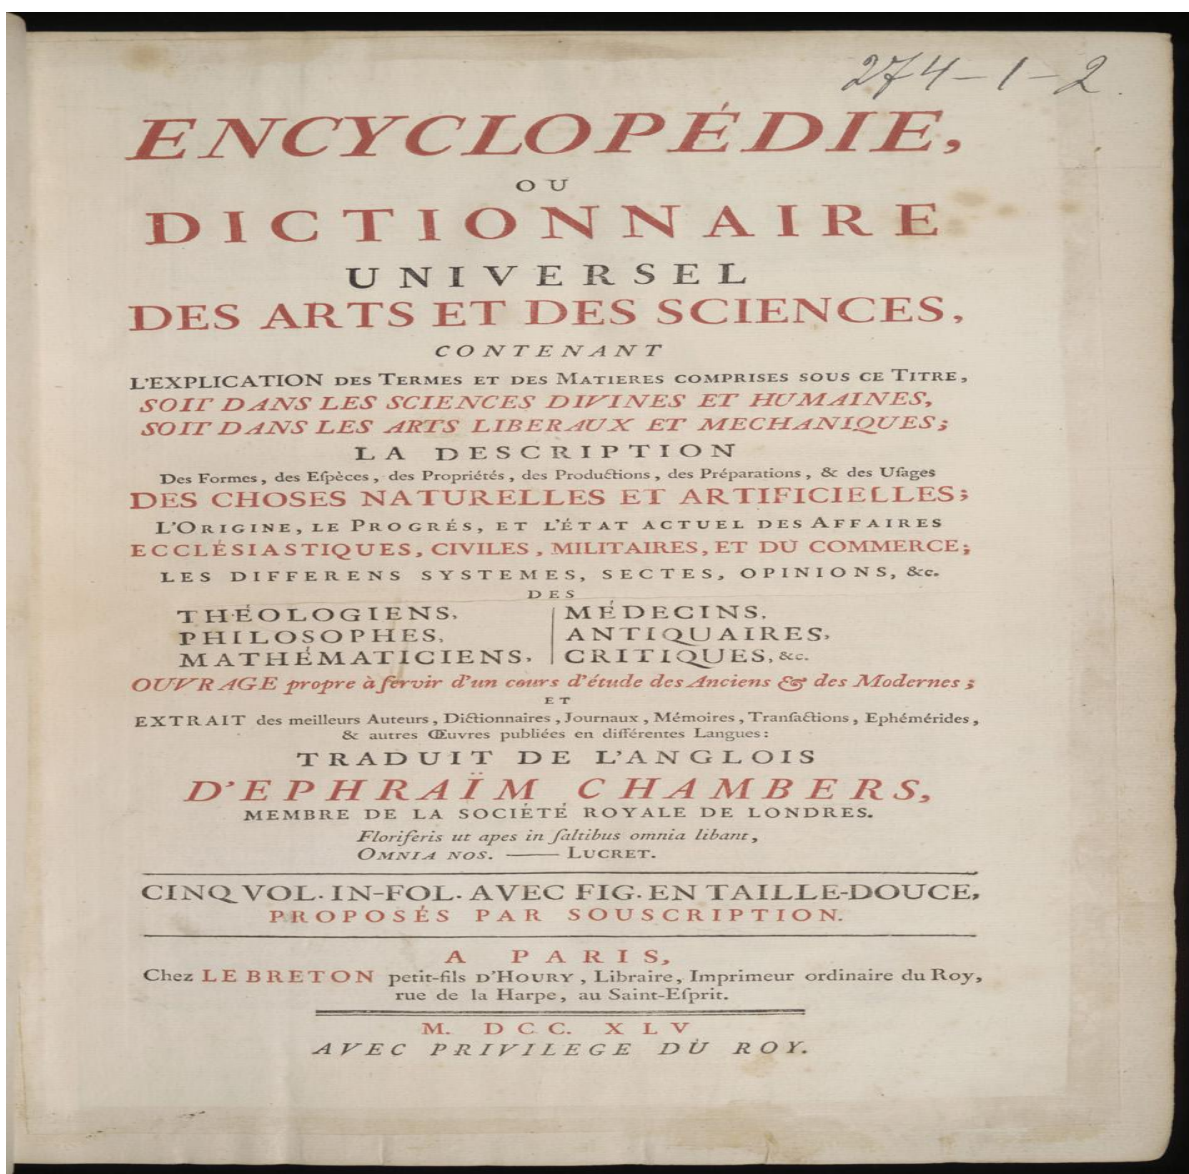 274-1-2
ENCYCLOPÉDIE,
OU
DICTIONNAIRE
UNIVERSEL
DES ARTS ET DES SCIENCES,
CONTENANT
L'EXPLICATION DES TERMES ET DES MATIERES COMPRISES SOUS CE TITRE,
SOIT DANS LES SCIENCES DIVINES ET HUMAINES,
SOIT DANS LES ARTS LIBERAUX ET MECHANIQUES;
LA DESCRIPTION
Des Formes, des Eſpèces, des Propriétés, des Productions, des Préparations, & des Uſages
DES CHOSES NATURELLES ET ARTIFICIELLES;
L'ORIGINE, LE PROGRÉS, ET L'ÉTAT ACTUEL DES AFFAIRES
ECCLÉSIASTIQUES, CIVILES, MILITAIRES, ET DU COMMERCE;
LES DIFFERENS SYSTEMES, SECTES, OPINIONS, &c.
DES
THÉOLOGIENS,
PHILOSOPHES,
MATHÉMATICIENS,
MÉDECINS,
ANTIQUAIRES,
CRITIQUES, &c.
OUVRAGE propre à ſervir d'un cours d'étude des Anciens & des Modernes;
ET
EXTRAIT des meilleurs Auteurs, Dictionnaires, Journaux, Mémoires, Tranſactions, Ephémérides,
& autres Œuvres publiées en différentes Langues:
TRADUIT DE L'ANGLOIS
D'EPHRAÏM CHAMBERS,
MEMBRE DE LA SOCIÉTÉ ROYALE DE LONDRES.
Floriferis ut apes in ſaltibus omnia libant,
OMNIA NOS. —— LUCRET.
CINQ VOL. IN-FOL. AVEC FIG. EN TAILLE-DOUCE,
PROPOSÉS PAR SOUSCRIPTION.
A PARIS,
Chez LE BRETON petit-fils D'HOURY, Libraire, Imprimeur ordinaire du Roy,
rue de la Harpe, au Saint-Eſprit.
M. DCC. XLV
AVEC PRIVILEGE DU ROY.